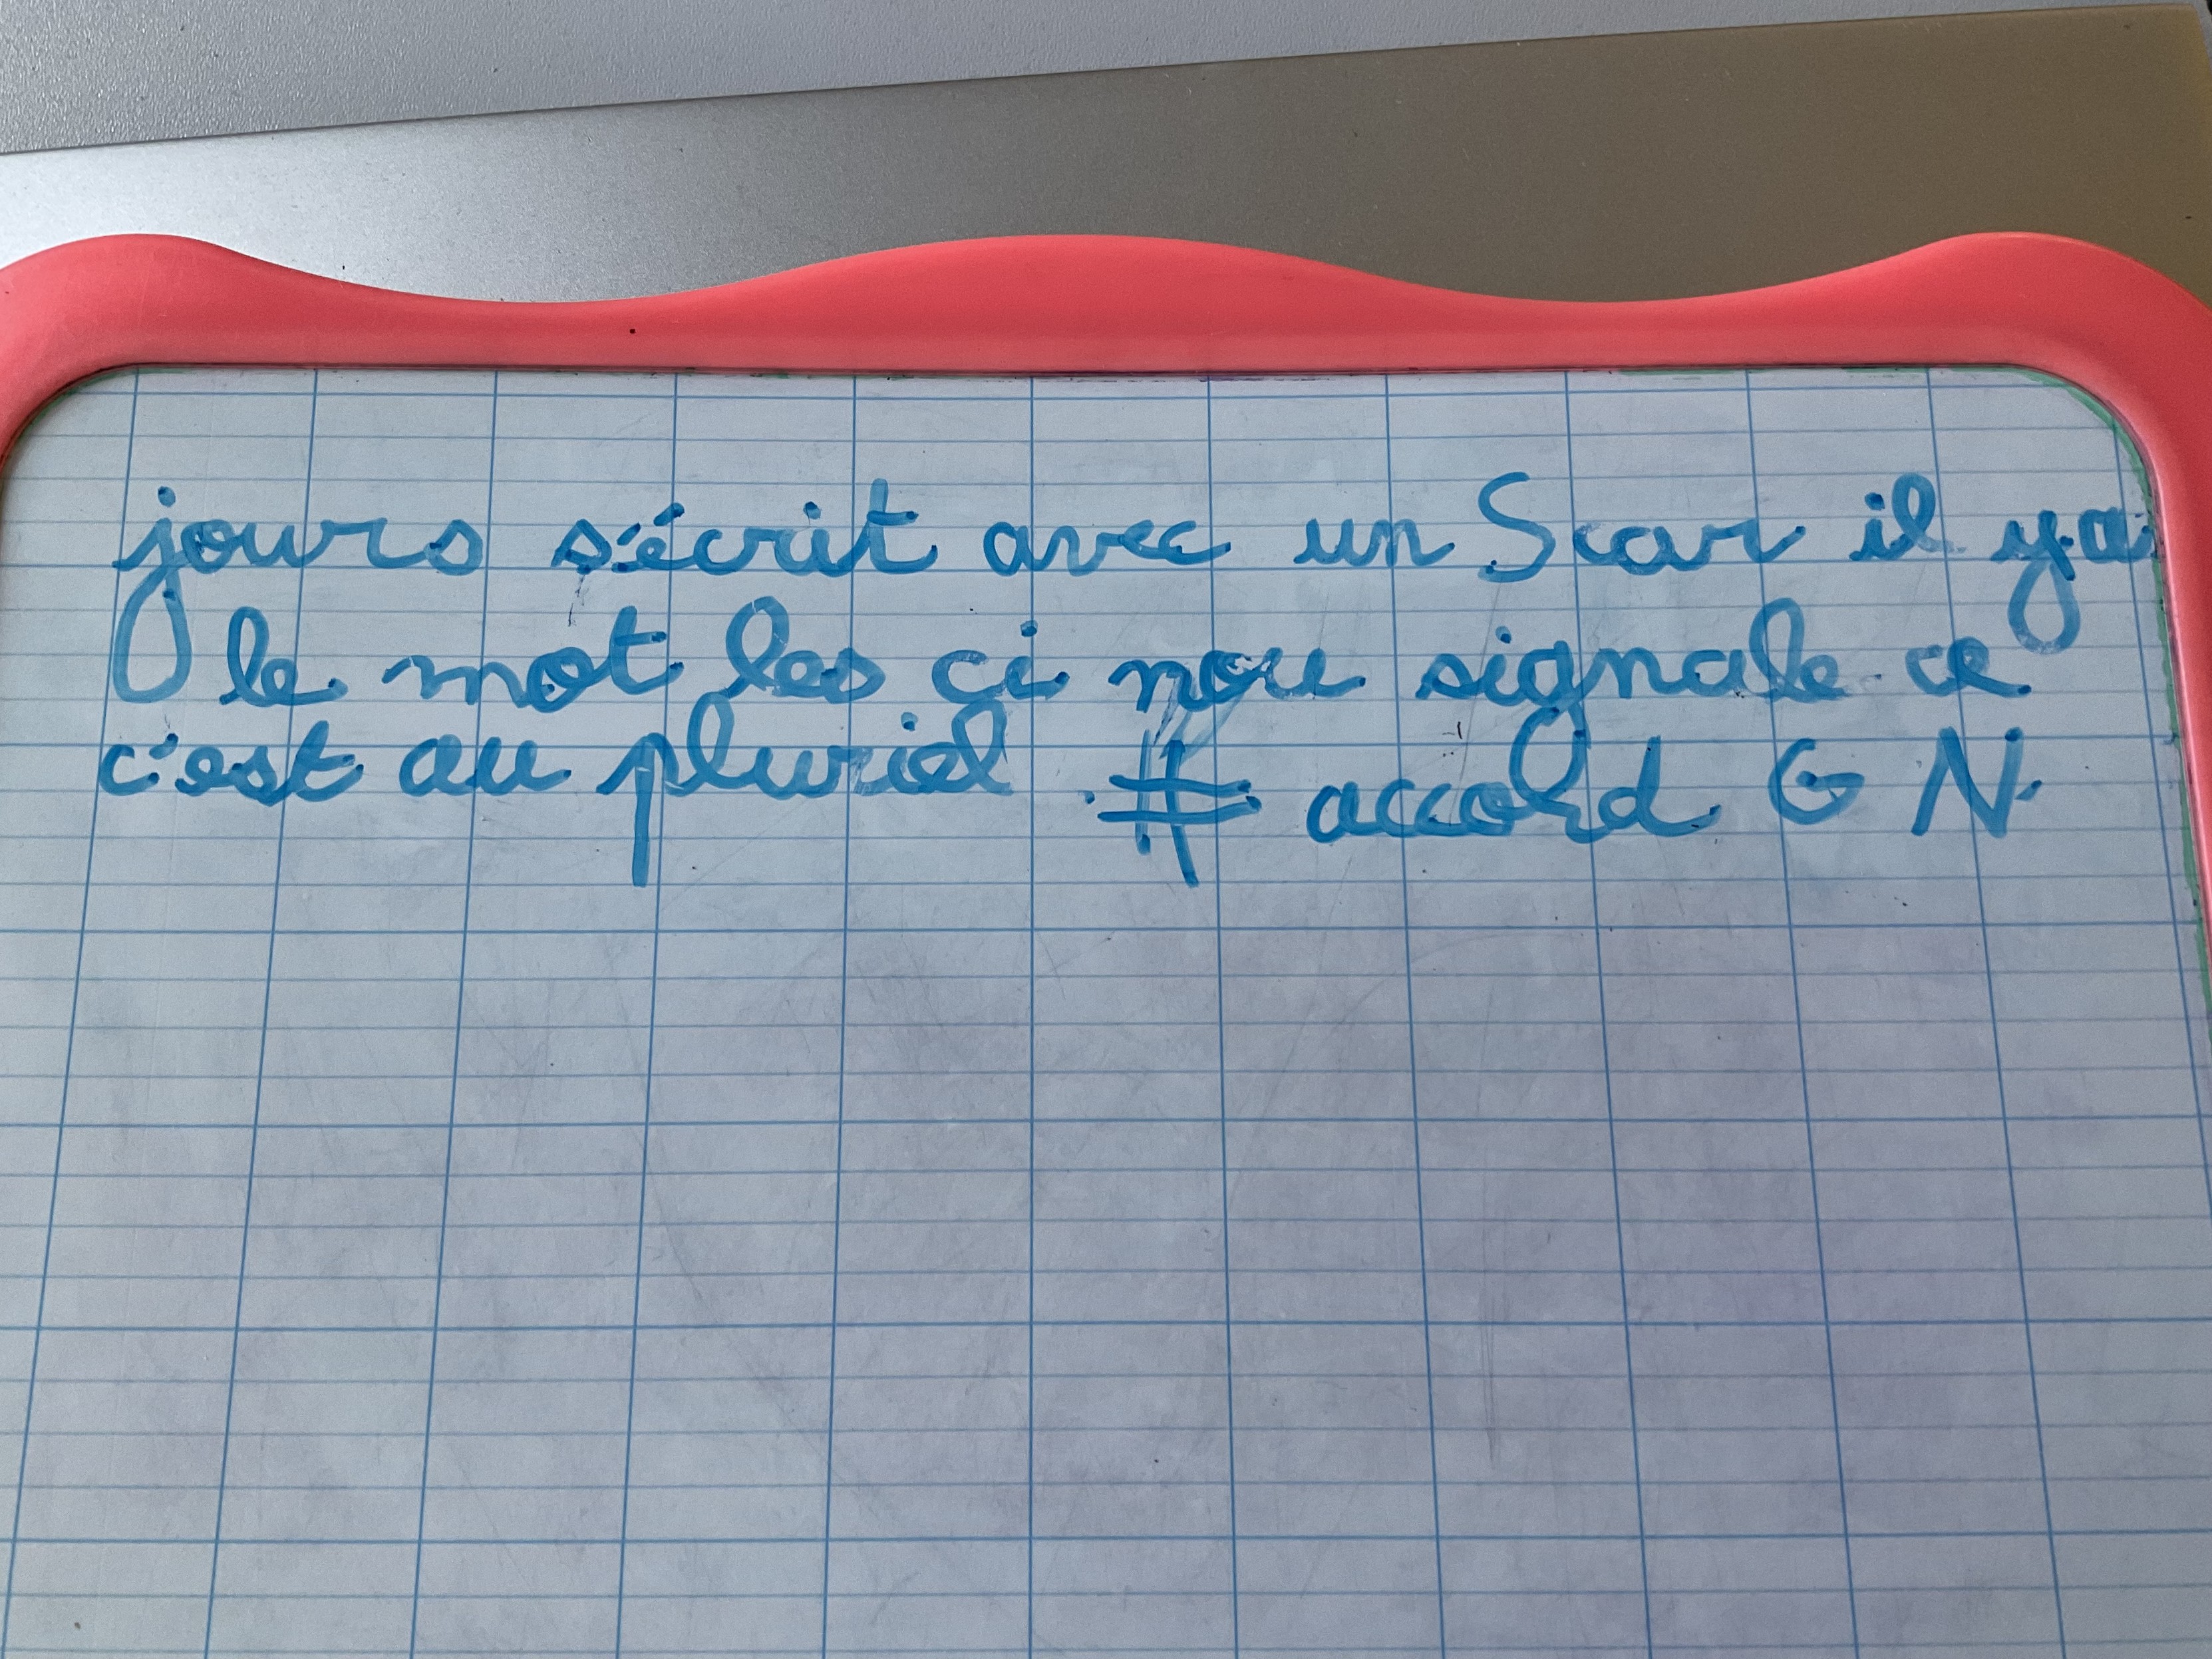 jours s'écrit avec un S car il y a
le mot les ci nou signale ce
c'est au pluriel # accord G N